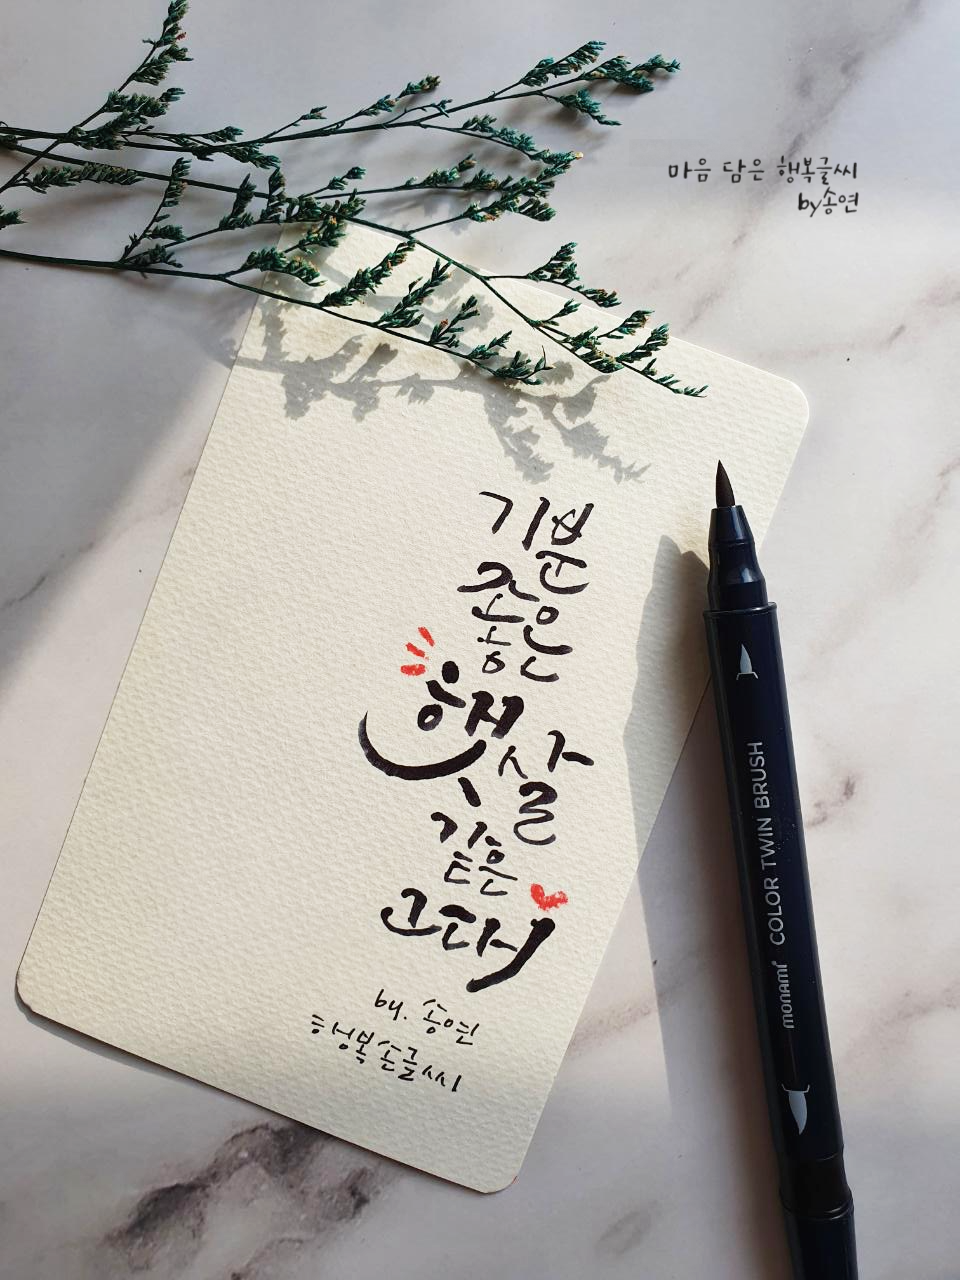 마음 담은 행복글씨
by송연
기분
좋은
햇살
같은
그대
by. 송연
행복손글씨
monami COLOR TWIN BRUSH